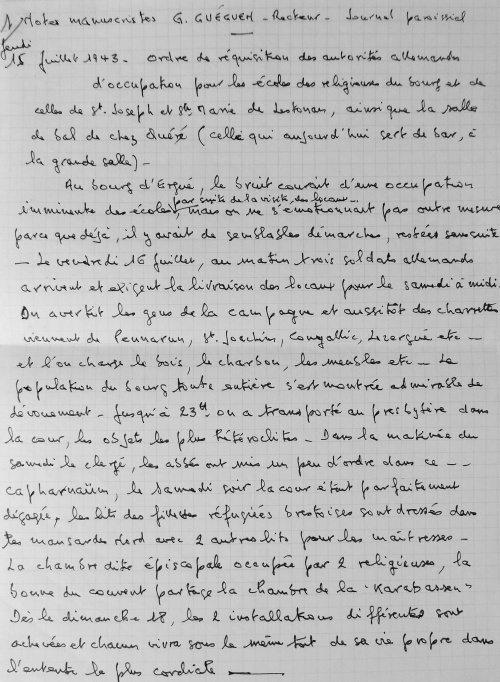 1 Notes manuscrites G. GUÉGUEN - Recteur - Journal paroissial
Jeudi
15 juillet 1943 - ordre de réquisition des autorités allemandes
d'occupation pour les écoles des religieuses du bourg et de
celles de St. Joseph et Ste Marie de Lestonan, ainsi que la salle
de bal de chez Quéré (celle qui aujourd'hui sert de bar, à
la grande salle) -
Au bourg d'Ergué, le bruit courait d'une occupation
par suite de la visite des locaux -
imminente des écoles, mais on ne s'émotionnait pas outre mesure
parce que déjà, il y avait de semblables démarches, restées sans suite
- Le vendredi 16 juillet, au matin trois soldats allemands
arrivent et exigent la livraison des locaux pour le samedi à midi.
On avertit les gens de la campagne et aussitôt des charrettes
viennent de Pennarun, St. Joachim, Congallic, Lezergué etc -
et l'on charge le bois, le charbon, les meubles etc - La
population du bourg toute entière s'est montrée admirable de
dévouement - Jusqu'à 23H on a transporté au presbytère dans
la cour, les objets les plus hétéroclites - Dans la matinée du
samedi le clergé, les abbés ont mis un peu d'ordre dans ce - -
capharnaüm, le samedi soir la cour étant parfaitement
dégagée, les lits des fillettes réfugiées brestoises sont dressés dans
les mansardes Nord avec 2 autres lits pour les maîtresses -
La chambre dite épiscopale occupée par 2 religieuses, la
bonne du couvent partage la chambre de la "Karabassen"
Dès le dimanche 18, les 2 installations différentes sont
achevées et chacun vivra sous le même toit de sa vie propre dans
l'entente la plus cordiale -